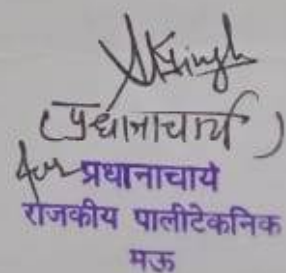 (प्रधानाचार्य)
for प्रधानाचार्य
राजकीय पालीटेकनिक
मऊ